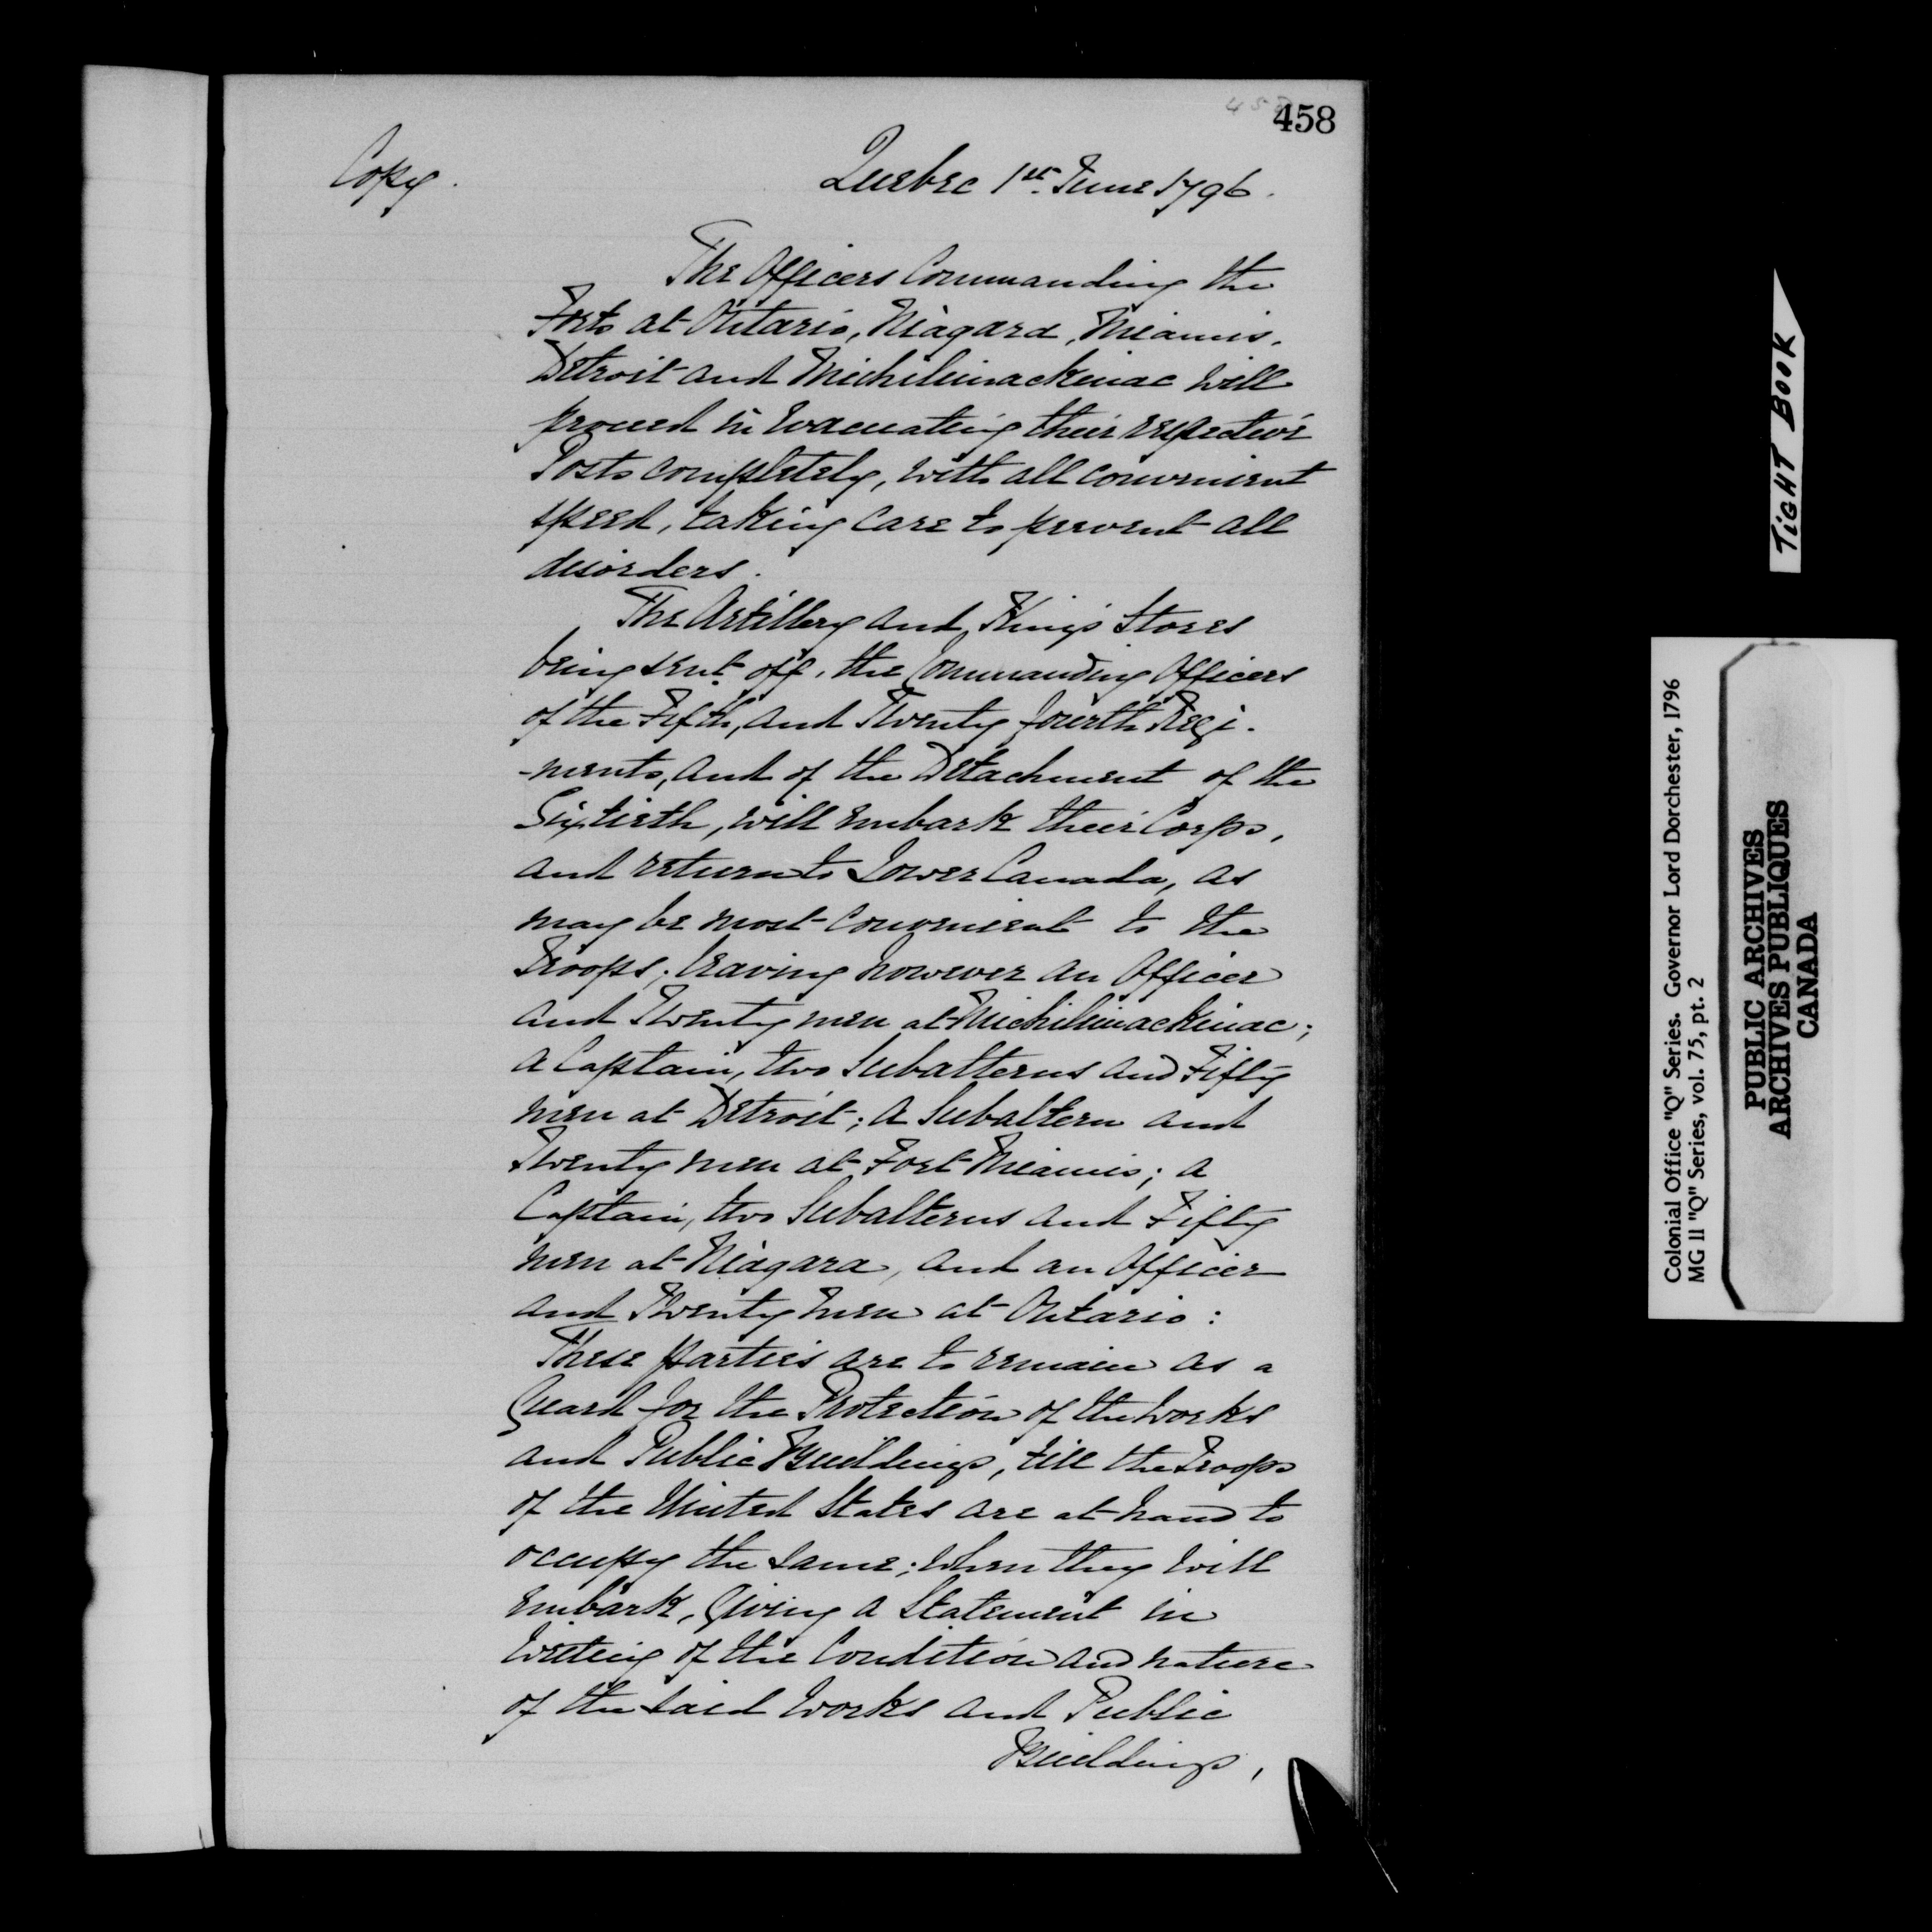 458
458
Copy.
Quebec 1st. June 1796.
The Officers Commanding the
Forts at Ontario, Niagara, Miamis,
Detroit and Michilimackinac will
proceed in Evacuating their respective
Posts completely, with all convenient
speed, taking care to prevent all
disorders.
The Artillery and King's Stores
being sent off, the Commanding Officers
of the Fifth, and Twenty fourth Regi-
-ments, and of the Detachment of the
Sixtieth, will embark their Corps,
and return to Lower Canada, as
may be most convenient to the
Troops; leaving however an Officer
and Twenty men at Michilimackinac;
a Captain, two Subalterns and Fifty
men at Detroit; a Subaltern and
Twenty men at Fort Miamis; a
Captain, two Subalterns and Fifty
men at Niagara, and an Officer
and Twenty men at Ontario:
These parties are to remain as a
Guard for the Protection of the works
and Public Buildings, till the Troops
of the United States are at hand to
occupy the same; when they will
embark, Giving a Statement in
writing of the Condition and nature
of the said works and Public
Buildings,
TIGHT BOOK
Colonial Office "Q" Series. Governor Lord Dorchester, 1796
MG 11 "Q" Series, vol. 75, pt. 2
PUBLIC ARCHIVES
ARCHIVES PUBLIQUES
CANADA